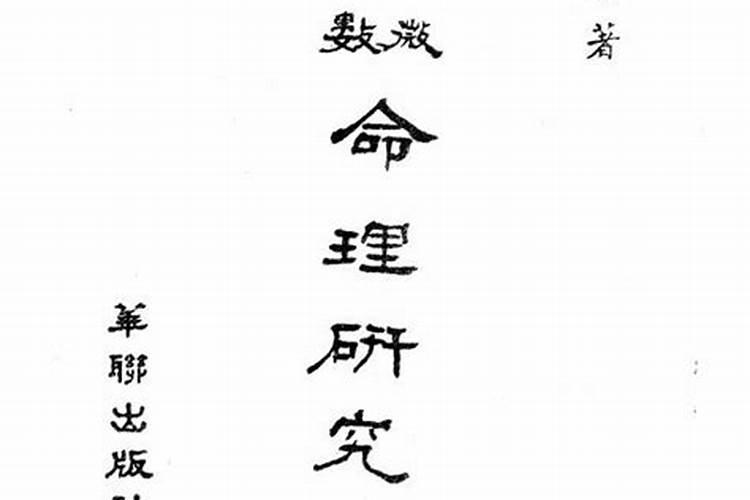 著
微
數
命理研究
華聯出版